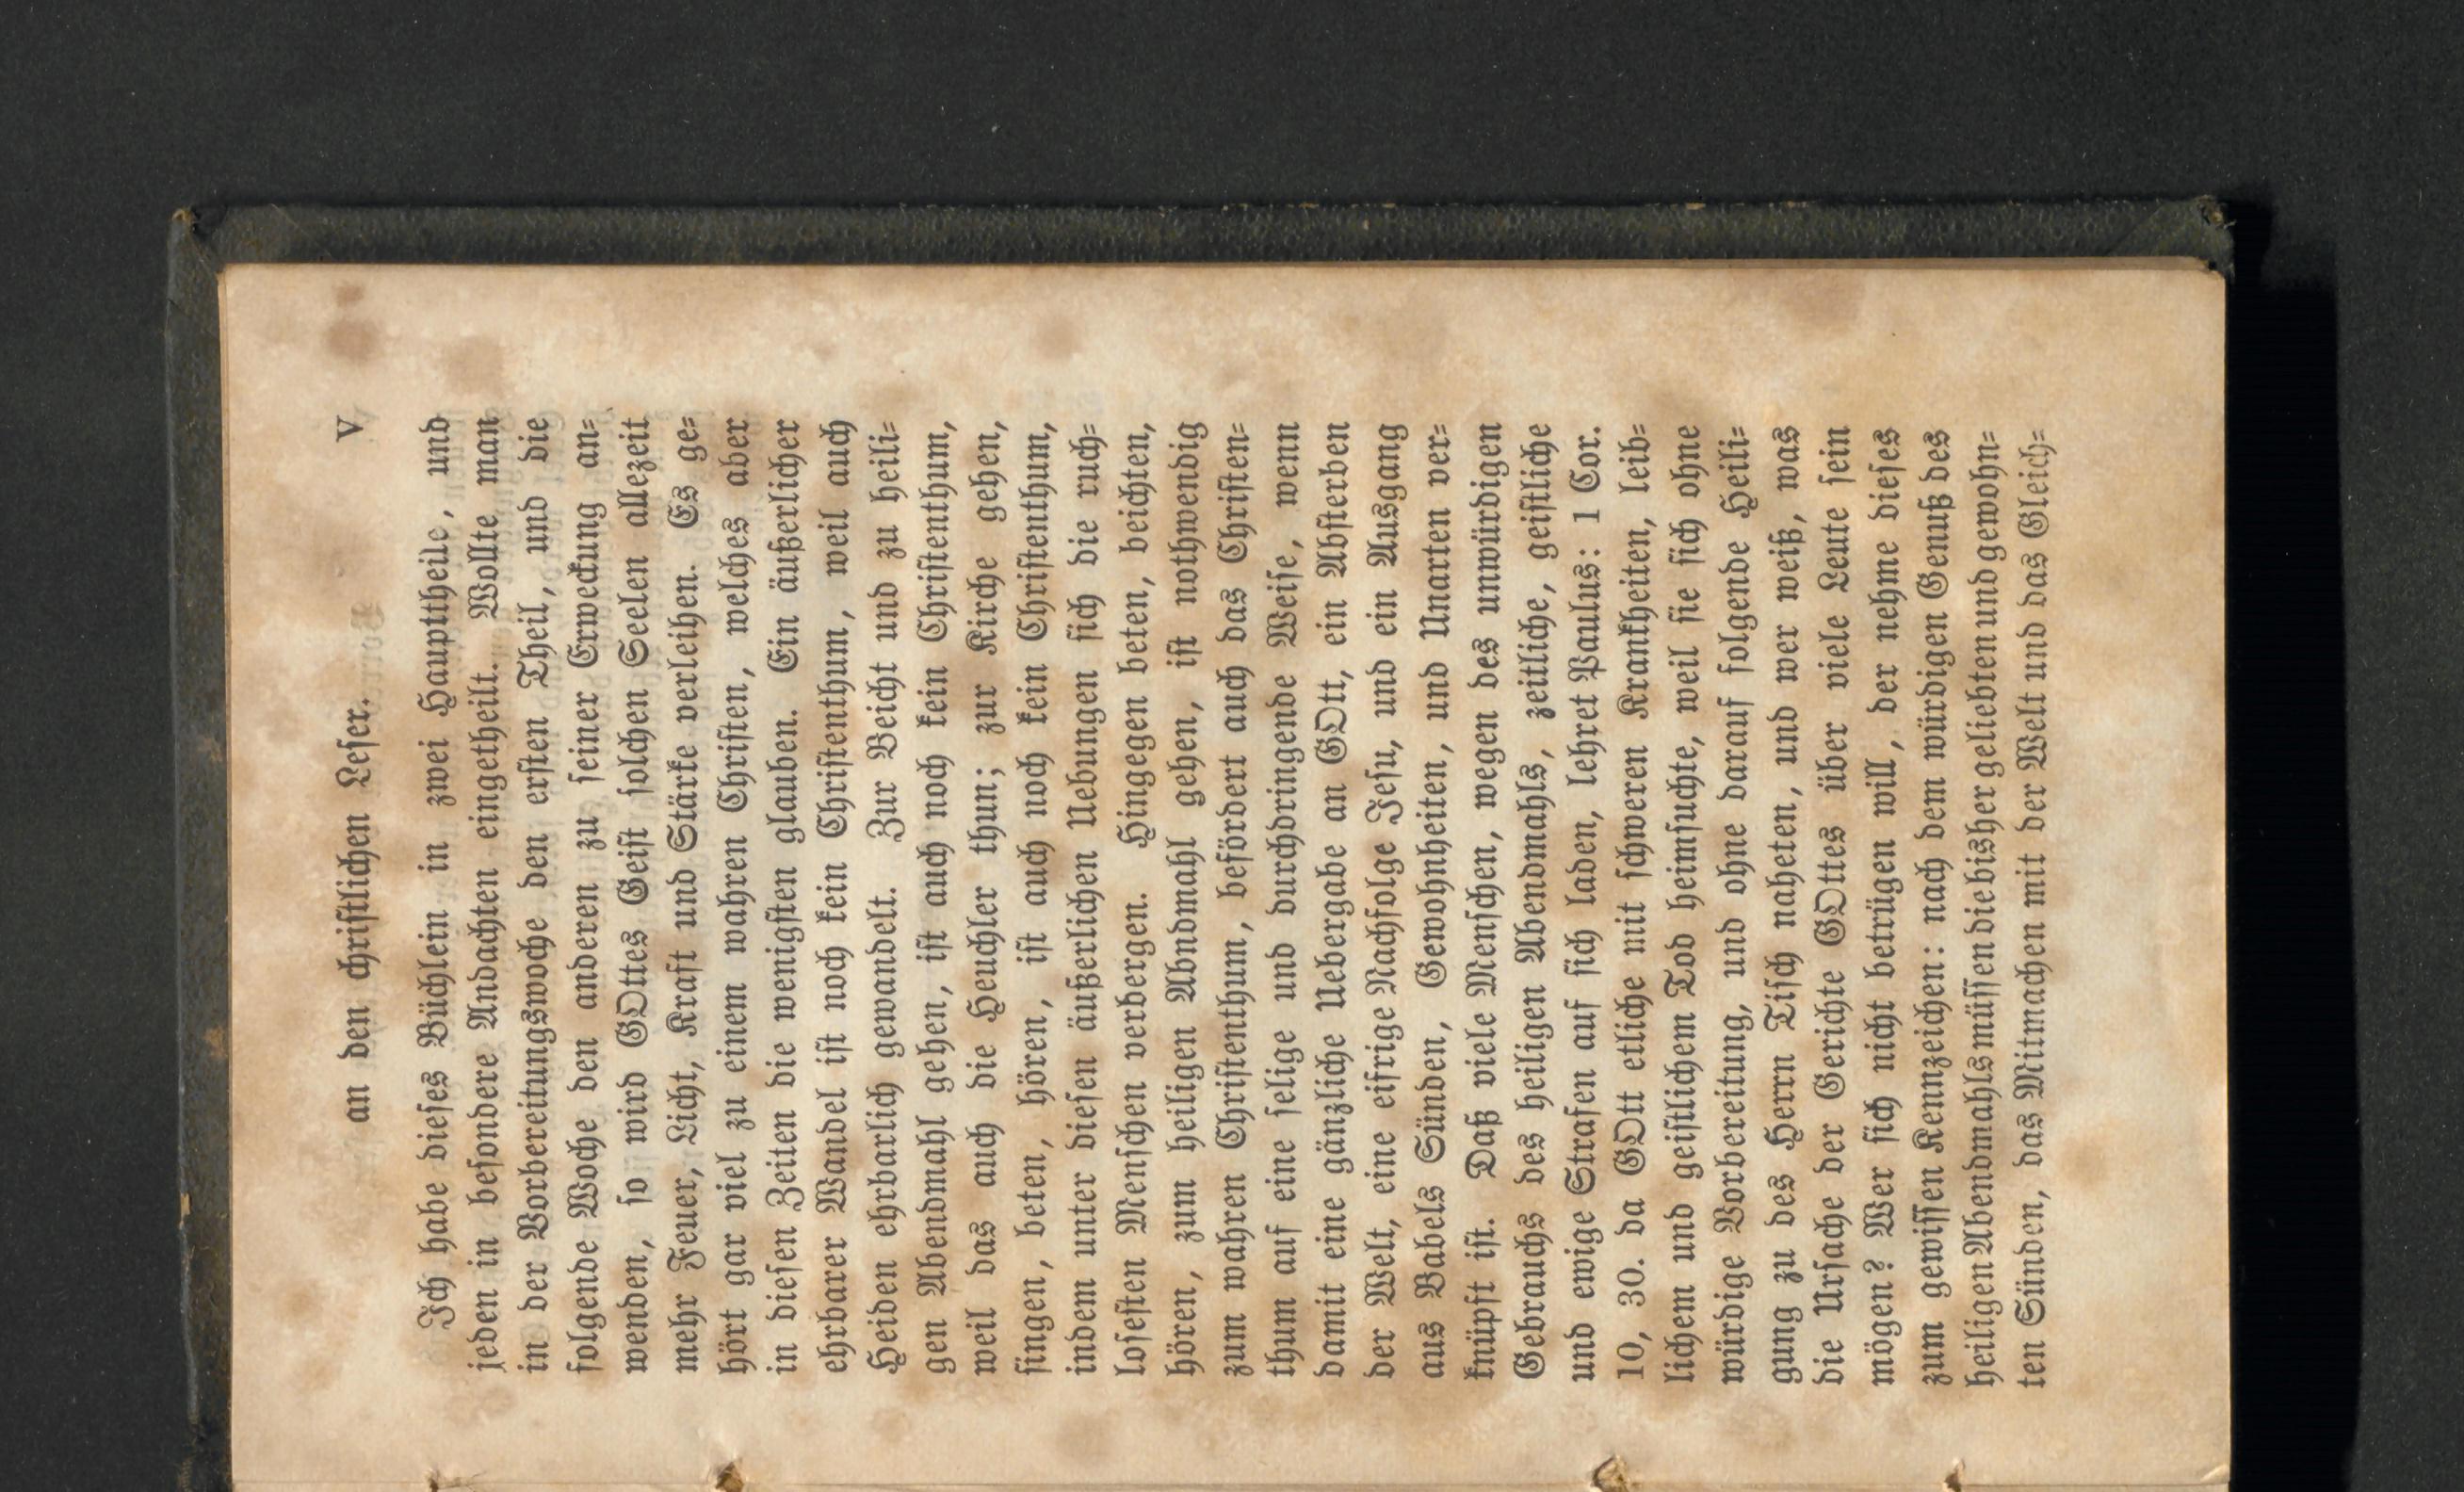 an den christlichen Leser. V
Ich habe dieses Büchlein in zwei Haupttheile, und
jeden in besondere Andachten eingetheilt. Wollte man
in der Vorbereitungswoche den ersten Theil, und die
folgende Woche den anderen zu seiner Erweckung an=
wenden, so wird GOttes Geist solchen Seelen allezeit
mehr Feuer, Licht, Kraft und Stärke verleihen. Es ge=
hört gar viel zu einem wahren Christen, welches aber
in diesen Zeiten die wenigsten glauben. Ein äußerlicher
ehrbarer Wandel ist noch kein Christenthum, weil auch
Heiden ehrbarlich gewandelt. Zur Beicht und zu heili=
gen Abendmahl gehen, ist auch noch kein Christenthum,
weil das auch die Heuchler thun; zur Kirche gehen,
singen, beten, hören, ist auch noch kein Christenthum,
indem unter diesen äußerlichen Uebungen sich die ruch=
losesten Menschen verbergen. Hingegen beten, beichten,
hören, zum heiligen Abndmahl gehen, ist nothwendig
zum wahren Christenthum, befördert auch das Christen=
thum auf eine selige und durchdringende Weise, wenn
damit eine gänzliche Uebergabe an GOtt, ein Absterben
der Welt, eine eifrige Nachfolge Jesu, und ein Ausgang
aus Babels Sünden, Gewohnheiten, und Unarten ver=
knüpft ist. Daß viele Menschen, wegen des unwürdigen
Gebrauchs des heiligen Abendmahls, zeitliche, geistliche
und ewige Strafen auf sich laden, lehret Paulus: 1 Cor.
10, 30. da GOtt etliche mit schweren Krankheiten, leib=
lichem und geistlichem Tod heimsuchte, weil sie sich ohne
würdige Vorbereitung, und ohne darauf folgende Heili=
gung zu des Herrn Tisch naheten, und wer weiß, was
die Ursache der Gerichte GOttes über viele Leute sein
mögen? Wer sich nicht betrügen will, der nehme dieses
zum gewissen Kennzeichen: nach dem würdigen Genuß des
heiligen Abendmahls müssen die bisher geliebten und gewohn=
ten Sünden, das Mitmachen mit der Welt und das Gleich=